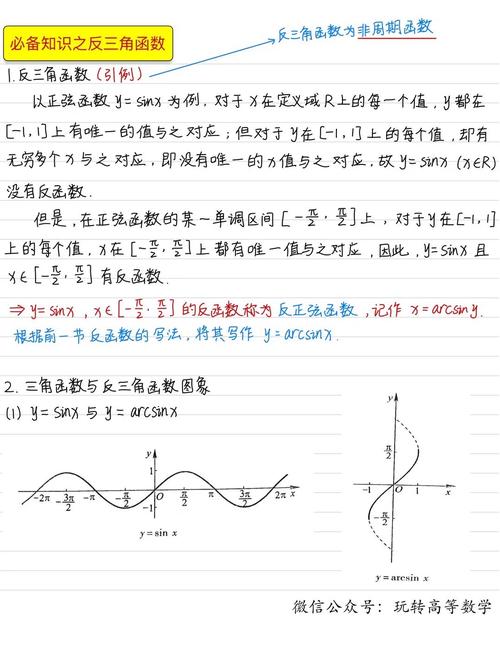 必备知识之反三角函数
反三角函数为非周期函数
1.反三角函数(引例)
以正弦函数 y=sinx 为例，对于 x 在定义域R上的每一个值，y都在
[-1,1]上有唯一的值与之对应；但对于y在[-1,1]上的每个值，却有
无穷多个x与之对应，即没有唯一的x值与之对应，故y=sinx (x∈R)
没有反函数.
但是，在正弦函数的某一单调区间[-π/2, π/2]上，对于y在[-1,1]
上的每个值，x在[-π/2, π/2]上都有唯一值与之对应，因此，y=sinx且
x∈[-π/2, π/2]有反函数.
⇒ y=sinx, x∈[-π/2, π/2]的反函数称为反正弦函数，记作 x=arcsiny.
根据前一节反函数的写法，将其写作 y=arcsinx.
2. 三角函数与反三角函数图象
(1) y=sinx 与 y=arcsinx
y
1
-2π -3π/2 -π -π/2 O π/2 π 3π/2 2π x
-1
y=sin x
y
π/2
-1 O 1 x
-π/2
y=arcsin x
微信公众号：玩转高等数学